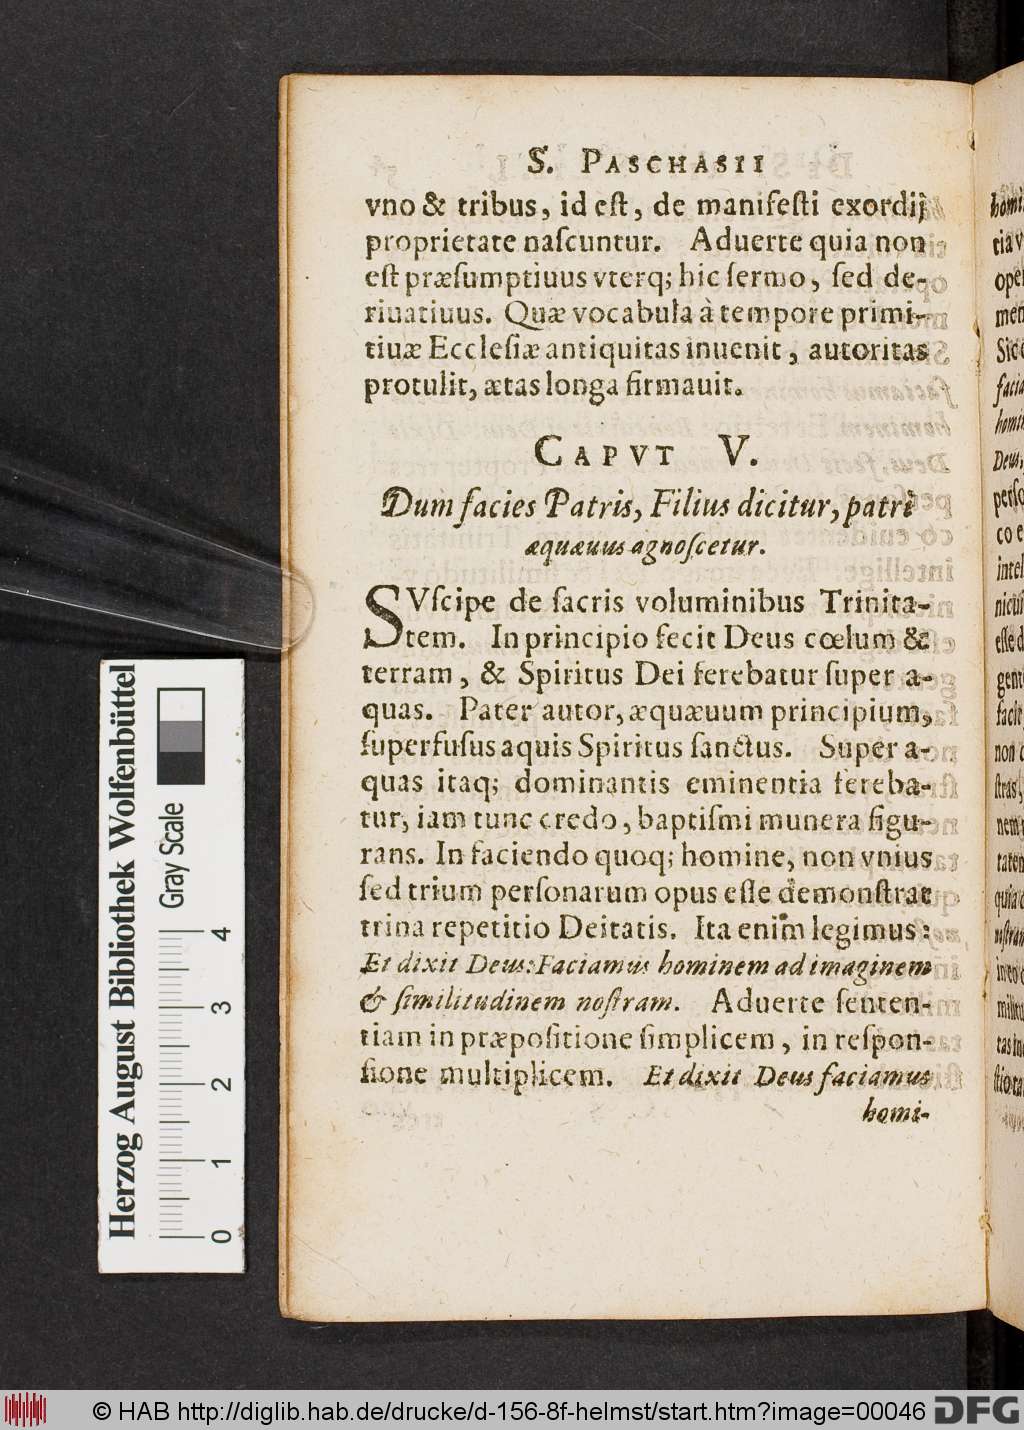 S. PASCHASII
vno & tribus, id eſt, de manifeſti exordij
proprietate naſcuntur. Aduerte quia non
eſt præſumptiuus vterq; hic ſermo, ſed de-
riuatiuus. Quæ vocabula à tempore primi-
tiuæ Eccleſiæ antiquitas inuenit, autoritas
protulit, ætas longa firmauit.
CAPVT V.
Dum facies Patris, Filius dicitur, patri
æquæuus agnoſcetur.
SVſcipe de ſacris voluminibus Trinita-
tem. In principio fecit Deus cœlum &
terram, & Spiritus Dei ferebatur ſuper a-
quas. Pater autor, æquæuum principium,
ſuperfuſus aquis Spiritus ſanctus. Super a-
quas itaq; dominantis eminentia fereba-
tur, iam tunc credo, baptiſmi munera figu-
rans. In faciendo quoq; homine, non vnius
ſed trium perſonarum opus eſſe demonſtrat
trina repetitio Deitatis. Ita enim legimus:
Et dixit Deus: Faciamus hominem ad imaginem
& ſimilitudinem noſtram. Aduerte ſenten-
tiam in præpoſitione ſimplicem, in reſpon-
ſione multiplicem. Et dixit Deus faciamus
homi-
Herzog August Bibliothek Wolfenbüttel
Gray Scale
0 1 2 3 4
© HAB http://diglib.hab.de/drucke/d-156-8f-helmst/start.htm?image=00046
DFG